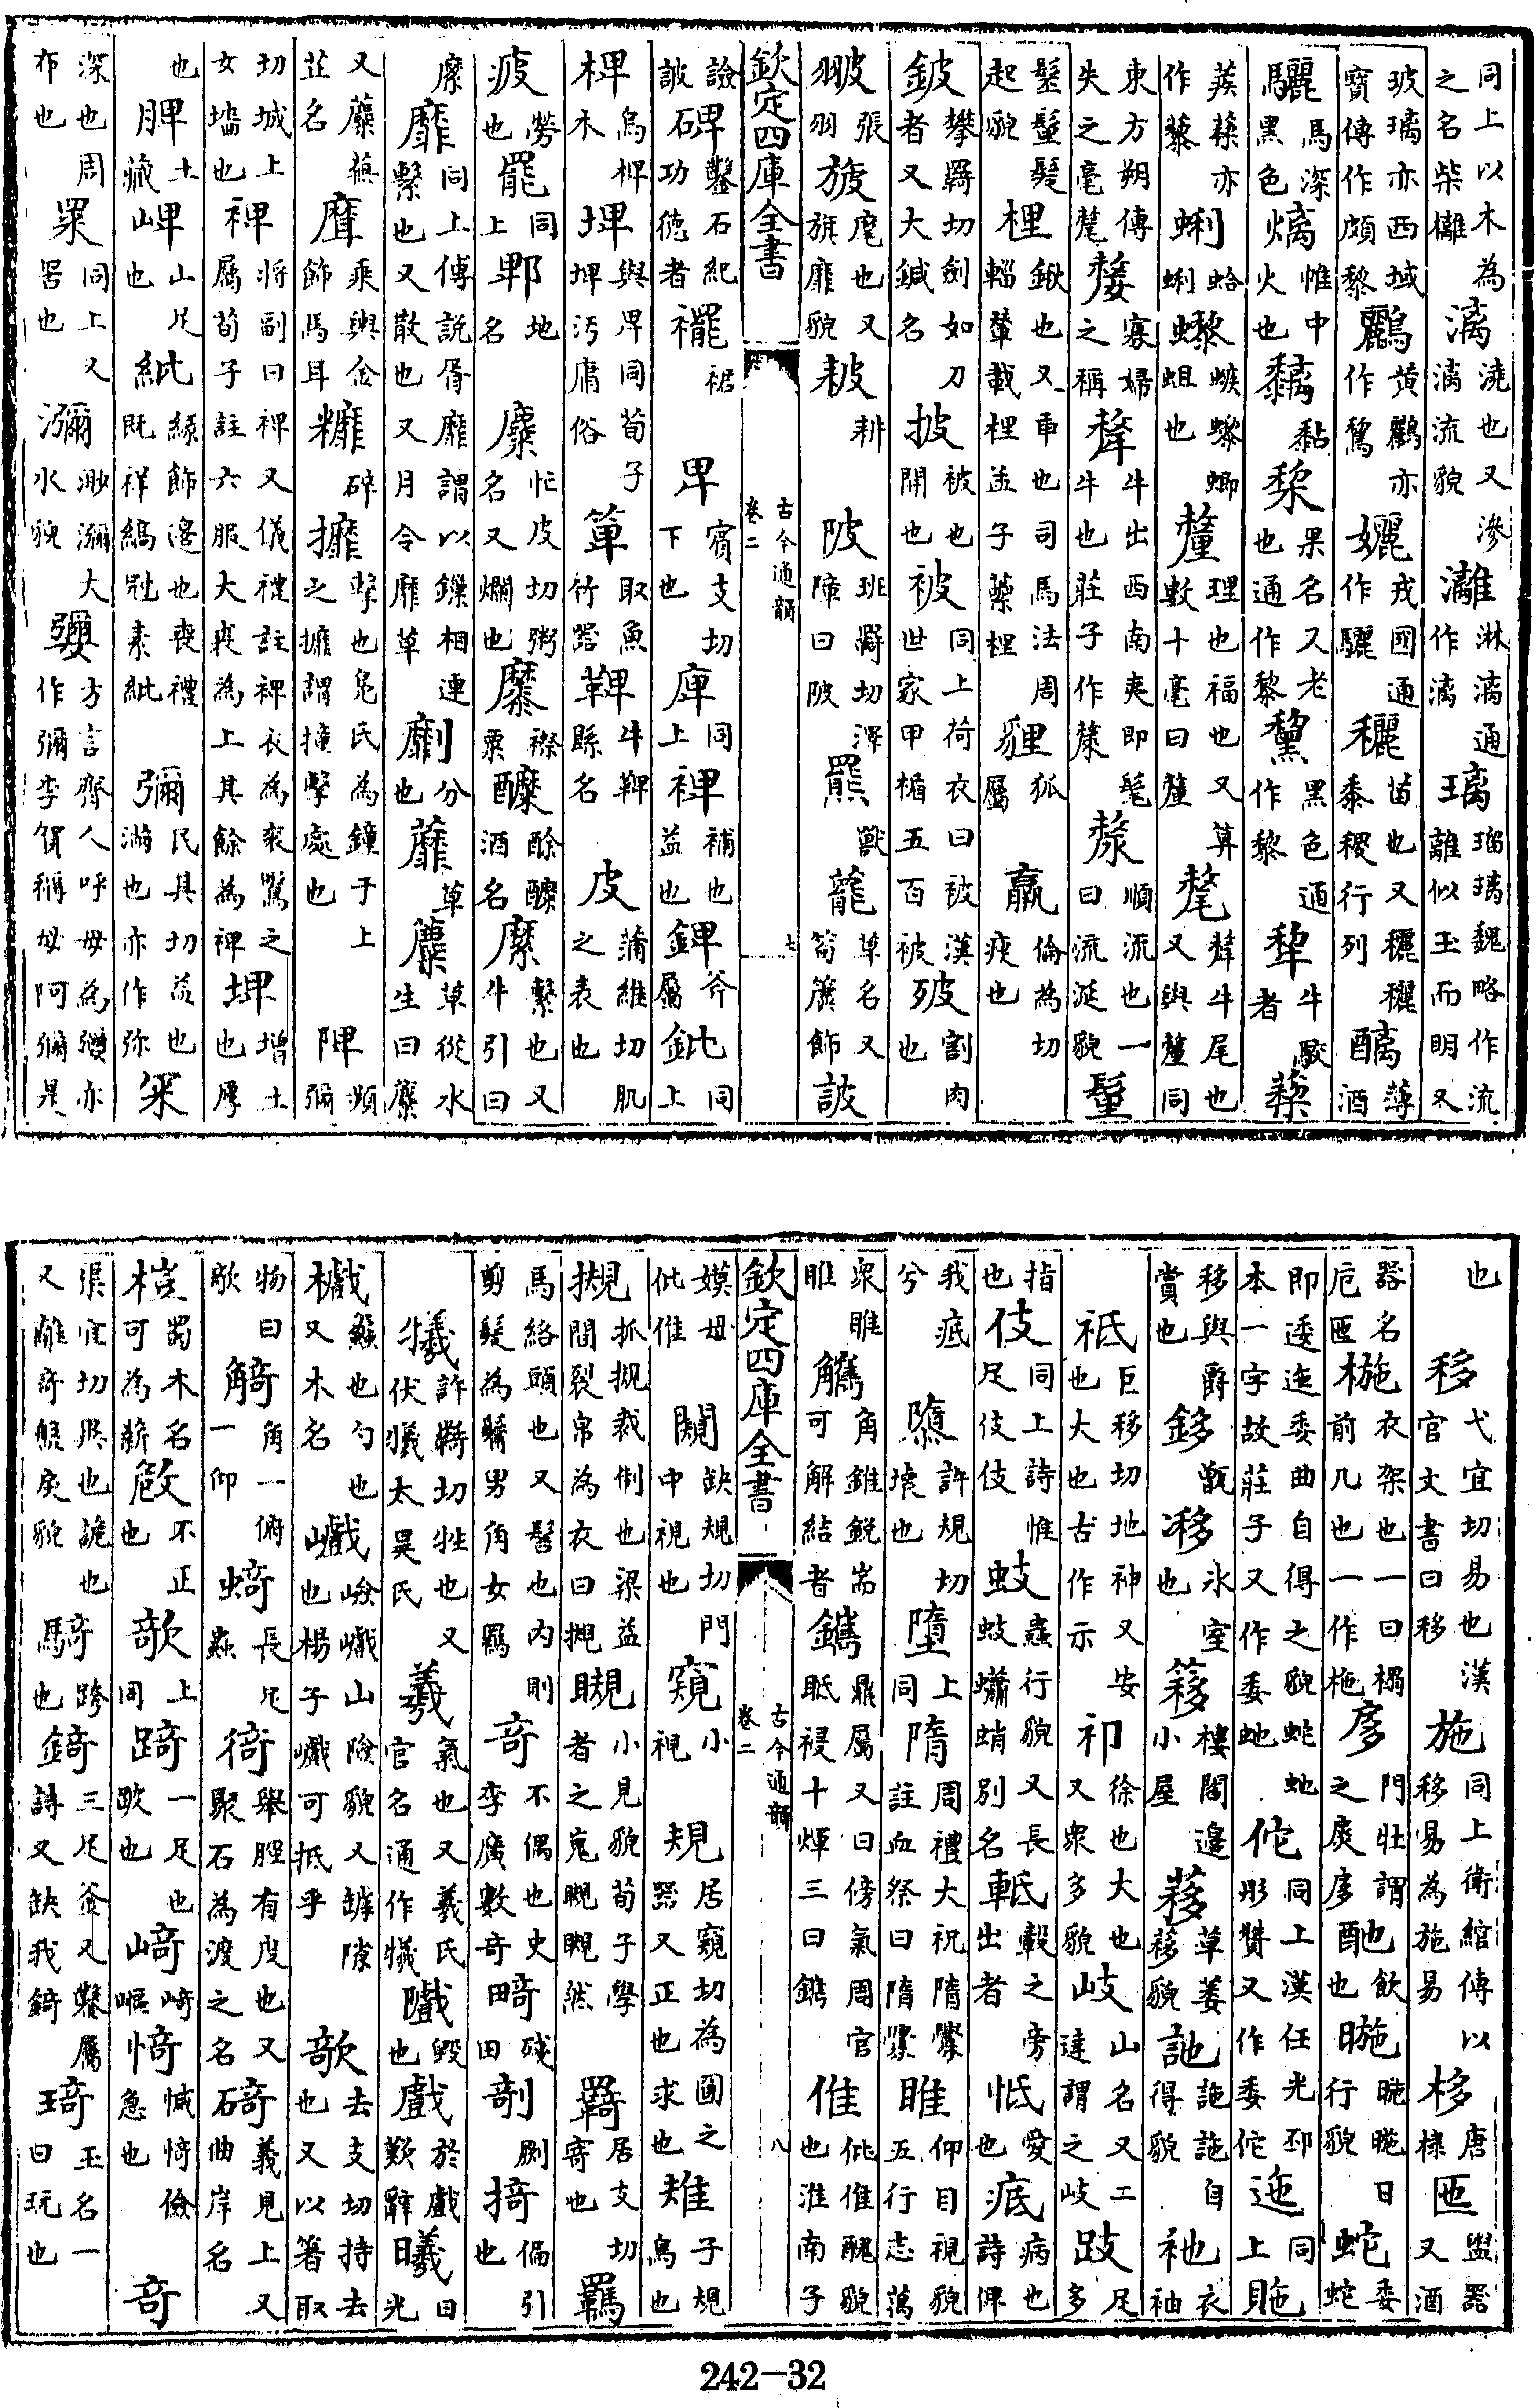 同上以木為之名柴欐漓澆也又漓流貌滲灕淋漓通作漓璃瑠璃魏略作流離似玉而明又
玻璃亦西域寶傳作頗黎鸝黃鸝亦作鵹孋戎國通作驪穲苗也又穲穲黍稷行列醨薄酒
驪馬深黑色熇惟中火也黐黏棃果名又老也通作黎黧黑色通作黎犂牛駁者蔾
蒺蔾亦作藜蜊蛤蜊蟍蟍蜘蛆也釐理也福也又算數十毫曰釐氂犛牛尾也又與釐同
東方朔傳失之毫氂嫠寡婦之稱犛牛出西南夷即髦牛也莊子作斄漦順流也一曰流涎貌鬛
髽鬛髮起貌梩鍬也又車輜輂載梩孟子虆梩司馬法周貍狐屬羸倫為切瘦也
鈹攀羇切劍如刀者又大鍼名披被也開也被同上荷衣曰被漢世家甲楯五百被䏢割肉也
翍張羽旇麾也又旗靡貌耚耕陂班羇切澤障曰陂羆獸䕗草名又筍簴飾詖
欽定四庫全書 古今通韻卷二 七
譣詖碑鑿石紀功德者䙰裙卑賓支切下也庳同上裨補也益也錍斧屬鈚同上
椑烏椑木埤與卑同荀子埤汚庸俗箄取魚竹器鞞牛鞞縣名皮蒲維切肌之表也
疲勞也罷同上郫地名麋忙皮切粥名又爛也䅽穄粟醾酴醾酒名縻繫也又牛引曰
縻靡同上傳說胥靡謂以鏁相連繫也又散也又月令靡草劘分也蘼草蘪草從水生曰蘪
又蘪蕪芷名𪎭乘輿金飾馬耳糜碎攠擊也鳧氏為鐘于上之攠謂撞擊處也陴頻彌
切城上女墻也裨將副曰裨又儀禮註裨衣為衮驚之屬荀子註六服大裘為上其餘為裨埤增土也厚
也脾土藏崥山足也紕緣飾邊也喪禮既祥縞冠素紕彌民具切益也滿也亦作弥冞
深也周布也罙同上又罟也瀰渺瀰大水貌㜷方言齊人呼母為㜷亦作彌李賀稱母阿彌是
也移弋宜切易也漢官文書曰移施同上衛綰傳以移易為施易栘唐棣匜盥器又酒
器名巵匜椸衣架也一曰榻前几也一作柂扅門牡謂之扊扅酏飲也暆暆暆日行貌蛇委蛇
即逶迤委曲自得之貌蛇虵本一字故莊子又作委虵佗同上漢任光邳彤贊又作委佗迆同上貤
移與爵賞也䤲甑㢋冰室也簃樓閣邊小屋䔟草萎䔟貌訑訑訑自得貌袘衣袖
祇巨移切地神又安也大也古作示祁徐也大也又眾多貌岐山名又二達謂之岐跂足多
指也伎同上詩惟足伎伎蚑蟲行貌又長蚑蠨蛸別名軝轂之旁出者忯愛也疷病也詩俾
我疷兮隳許規切壞也墮上同隋周禮大祝隋釁註血祭曰隋睢仰目視貌五行志萬
衆睢睢觿角錐銳耑可解結者鑴鼎屬又曰傍氣周官眡祲十煇三曰鑴倠仳倠醜貌也淮南子
欽定四庫全書 古今通韻卷二 八
嫫母仳倠闚缺規切門中視也窺小視規居窺切為圓之器又正也求也䳏子規鳥也
摫抓摫裁制也梁益間裂帛為衣曰摫䙾小見貌荀子學者之嵬瞡瞡然羇居支切寄也羈
馬絡頭也又髻也內則剪髮為鬌男角女羈奇不偶也史李廣數奇畸殘田剞剧掎偏引也
犧許羈切牲也又伏犧太昊氏羲氣也又羲氏官名通作犧隵毁也戲於戲歎辭曦日光
㰕蠡也勺也又木名巇嶮巇山險貌又罅隙也楊子巇可抵乎㩻去支切持去也又以箸取
物曰㩻觭角一俯一仰蛴長足蟲徛舉脛有度也又聚石為渡之名碕義見上又石曲岸名
榿蜀木名可為薪攲不正也欹上同踦一足也跛也崎崎嶇也㥓憾㥓儉急也奇
渠宜切異也詭也又離奇盤戾貌騎跨也錡三足釜又鑿屬詩又缺我錡琦玉名一曰玩也
242-32